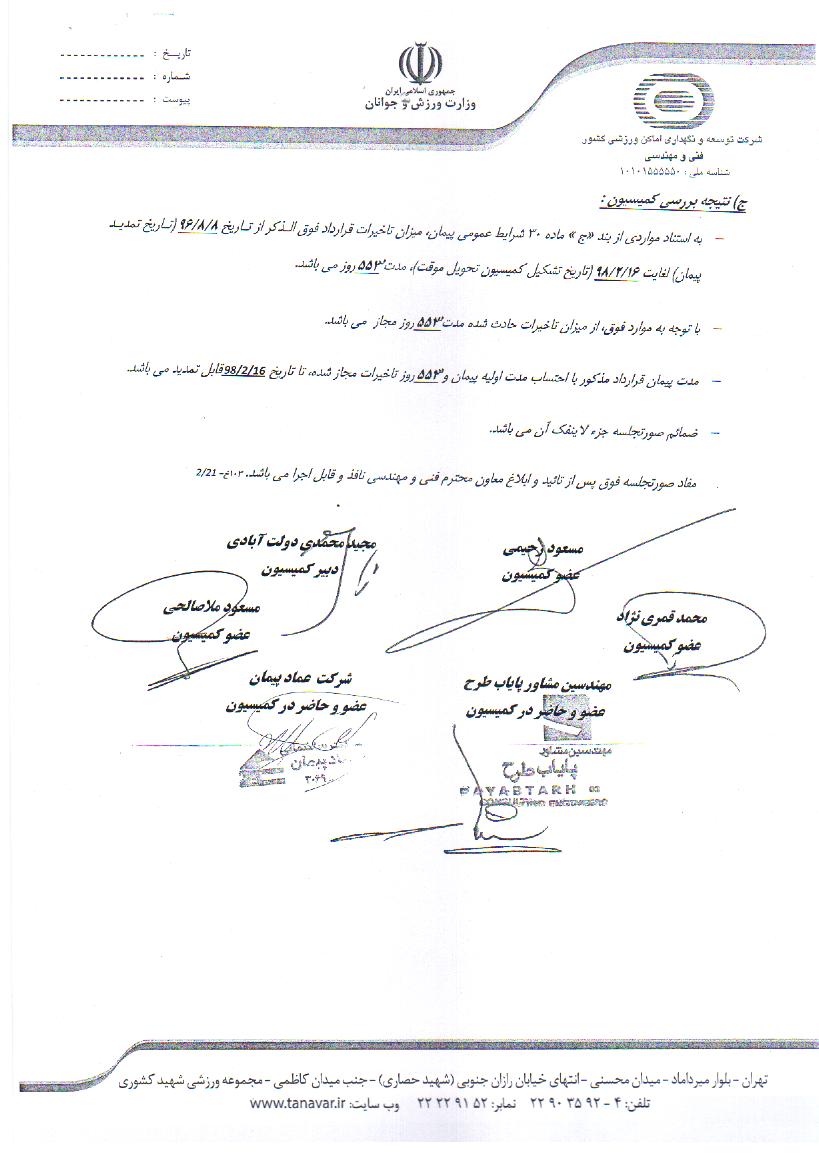 تاریخ :
شماره :
پیوست :
جمهوری اسلامی ایران
وزارت ورزش و جوانان
شرکت توسعه و نگهداری اماکن ورزشی کشور
فنی و مهندسی
شناسه ملی : ۱۰۱۰۱۵۵۵۵۵۰
ج) نتیجه بررسی کمیسیون :
– به استناد مواردی از بند «ج» ماده ۳۰ شرایط عمومی پیمان، میزان تاخیرات قرارداد فوق الذکر از تاریخ ۹۶/۸/۸ (تاریخ تمدید
پیمان) لغایت ۹۸/۲/۱۶ (تاریخ تشکیل کمیسیون تحویل موقت)، مدت ۵۵۳ روز می باشد.
– با توجه به موارد فوق، از میزان تاخیرات حادث شده مدت ۵۵۳ روز مجاز می باشد.
– مدت پیمان قرارداد مذکور با احتساب مدت اولیه پیمان و ۵۵۳ روز تاخیرات مجاز شده، تا تاریخ 98/2/16 قابل تمدید می باشد.
– ضمائم صورتجلسه جزء لاینفک آن می باشد.
مفاد صورتجلسه فوق پس از تائید و ابلاغ معاون محترم فنی و مهندسی نافذ و قابل اجرا می باشد. ۱۰۲خ- 2/21
مسعود رحیمی
مجید محمدی دولت آبادی
عضو کمیسیون
دبیر کمیسیون
محمد قمری نژاد
مسعود ملاصالحی
عضو کمیسیون
عضو کمیسیون
مهندسین مشاور پایاب طرح
شرکت عماد پیمان
عضو و حاضر در کمیسیون
عضو و حاضر در کمیسیون
مهندسین مشاور
پایاب طرح
PAYABTARH CO
CONSULTING ENGINEERS
تهران - بلوار میرداماد - میدان محسنی - انتهای خیابان رازان جنوبی (شهید حصاری) - جنب میدان کاظمی - مجموعه ورزشی شهید کشوری
تلفن: ۴ - ۹۲ ۳۵ ۹۰ ۲۲ نمابر: ۵۲ ۹۱ ۲۲ ۲۲ وب سایت: www.tanavar.ir